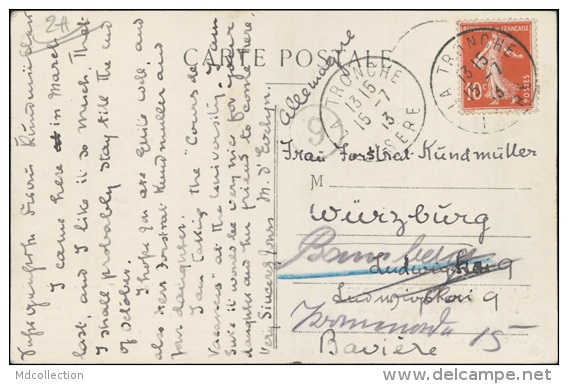 24
CARTE POSTALE
Frau
I came here in March
last, and I like it so much, that
I shall probably stay till the end
of October.
I hope you are quite well, and
also Herr Forstrat Kundmüller and
your daughter.
I am taking the "Cours de
Vacances" at the University. I am
sure it would be very nice for your
daughter and her friend to come here.
Very Sincerely Yours M. d'
Allemagne
9
LA TRONCHE
13 15
15-7
13
ISERE
REPUBLIQUE FRANÇAISE
10 c
POSTES
LA TRONCHE
13 15
Frau Forstrat-Kundmüller
M
Würzburg
Bamberg
Ludwigkai 9
Ludwigkai 9
15
Bavière
Mdcollection
www.delcampe.net